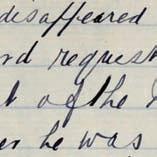 disappeared
request
of the
he was